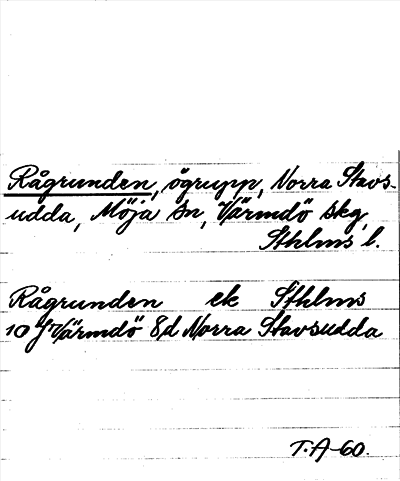 Rågrunden, ögrupp, Norra Stavs-
udda, Möja sn, Värmdö skg,
Sthlms l.
Rågrunden ek Sthlms
10 J Värmdö 8d Norra Stavsudda
T.A-60.